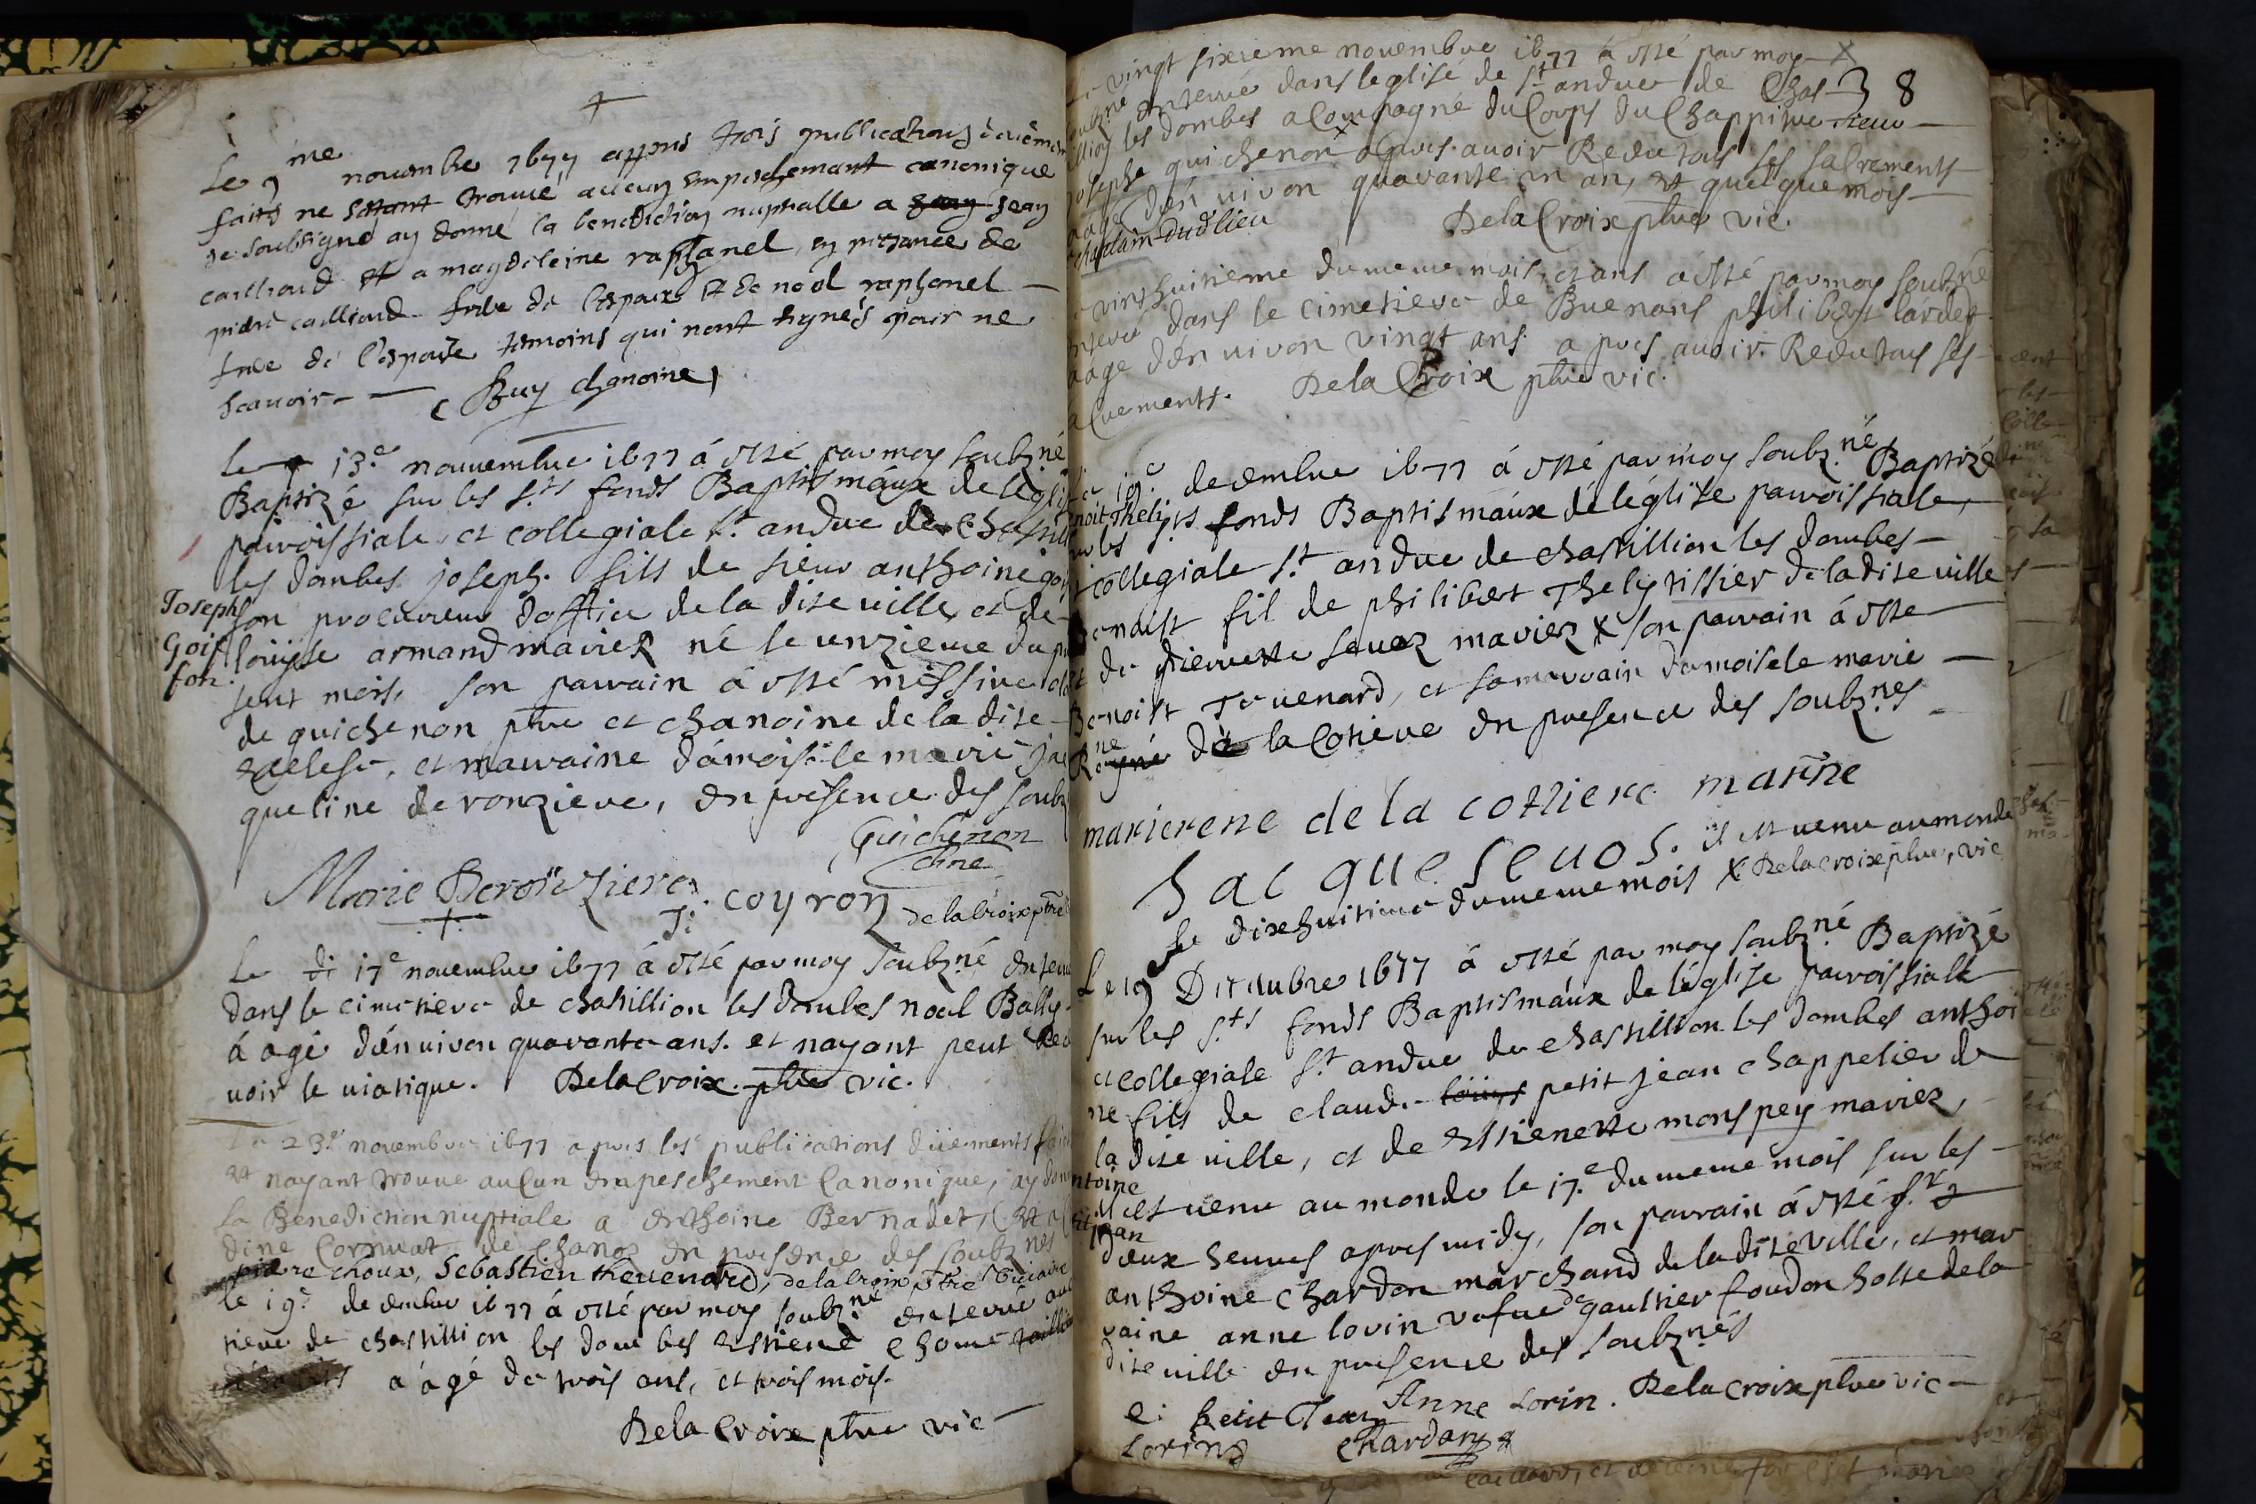 Le 9me novembre 1677 appres trois publications deuëmen
faits ne sestant trouué aucun empeschemant canonique
je soubsigné ay donné la benediction nuptialle a jean
cailliaud et a magdeleine raphanel en presance de
piere cailliaud frere de l'espoux et de noel raphanel
frere de l'espouse temoins qui nont signés pour ne
scauoir
Buy chanoine
le 13e nouuembre 1677 á esté par moy soubz.né
Baptizé sur les s.ts fonds Baptismáux de légli
parroissiale et collegiale s.t andre de chastill
les dombes joseph. fils de sieur anthoine goy
son procureur doffice de la dite ville et de
Joseph
Goif
fon.
loüyse armand mariez né le unzieme du p
sent mois, son parrain á esté messire
de guichenon ptre et chanoine de la dite
eglese, et marraine dámois.le marie jac
queline de ronziere, en présence des soubz
Guichenon
chne
Marie Deronziere
J. coyron
delacroix ptre
Le 17e nouembre 1677 á esté par moy soubz.né enterr
dans le cimetiere de chastillion les dombes noel Bally
á agé d'énuiron quarante ans. et nayant peut Rece
uoir le uiatique. Delacroix ptre vic.
Le 23e nouembre 1677 apres les publications düements fai
et nayant trouué aulcun empeschement Canonique, iay don
la Benediction nuptiale a Anthoine Bernadet, et
dine Cornuat de Chanoz en presence des soubz.nes
piere choux, Sebastien theuenard, delacroix ptre vicaire
le 19e decembre 1677 á esté par moy soubz.né enterré au
tiere de chastillion les dombes Estiene chome
á ágé de trois ans, et trois mois.
Dela Croix ptre vic
vingt sixieme nouembre 1677 á esté par moy
38
soubz.ne enterré dans léglisé de s.t andre de Chas
tillion les dombes acompagné du Corps du Chappitre sieur
josephe guichenon apres auoir Receu tous ses sacrements
aagé d'énuiron quarante un an, et quelque mois
chaplain dud. lieu
Dela Croix ptre vic.
vint huitieme du meme mois, et ans á esté par moy soubz.né
enterré dans le cimetiere de Buenans philibert lárdet
aagé d'énuiron vingt ans. apres auoir Receu tous ses
sacrements. Dela Croix ptre vic.
19e decembre 1677 á esté par moy soubz.né Baptizé
noit Thely
sur les s.ts fonds Baptismáux dé léglise parroissiale,
et collegiale s.t andre de chastillion les dombes
Benoist fil de philibert Thely tissier de la dite ville
et de pierrette seuoz mariez X son parrain á este
Benoist Teuenard, et sa marrain damoisele marie
Rene de la Cotiere en presence des soubz.nes
marierene de la cottiere marine
Jacque seuos. il est venu au monde
le dixhuitieme du meme mois X Delacroix ptre, vic
Le 19 Decembre 1677 á esté par moy soubz.né Baptizé
sur les s.ts fonds Baptismáux de léglise parroissiale
et collegiale s.t andre de chastillion les dombes anthoi
ne fils de claude loüys petit jean chappelier de
la dite ville, et de Estienette monspey mariez,
ntoine
tit jean
il est uenu au monde le 17e du meme mois sur les
deux heures apres midy, son parrain á esté s.r
anthoine chardon marchand de la dite ville, et mar
raine anne lorin vefue de gaultier foudon hoste de la
dite ville en presence des soubz.nés
e. petit Jean Anne Lorin. Delacroix ptre vic
Lorin Chardon